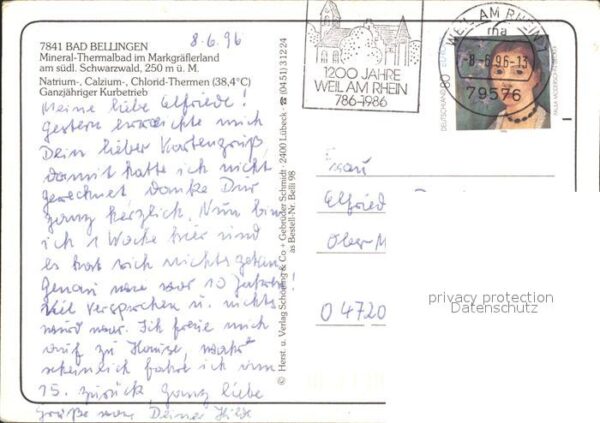 8.6.96
7841 BAD BELLINGEN
Mineral-Thermalbad im Markgräflerland
am südl. Schwarzwald, 250 m ü. M.
Natrium-, Calzium-, Chlorid-Thermen (38,4°C)
Ganzjähriger Kurbetrieb
Meine liebe Elfriede!
Gestern erreichte mich
Dein lieber Kartengruß,
damit hatte ich nicht
gerechnet danke Dir
ganz herzlich. Nun bin
ich 1 Woche hier und
es hat sich nichts getan.
Genau wie vor 10 Jahren!
Viel versprochen u. nichts
wird wahr. Ich freue mich
auf zu Hause, wahr-
scheinlich fahre ich am
15. zurück, ganz liebe
Grüße von Deiner Hilde
© Herst. u. Verlag Schöning & Co + Gebrüder Schmidt · 2400 Lübeck · ☎ (04 51) 3 12 24
as Bestell-Nr. Belli 98
1200 JAHRE
WEIL AM RHEIN
786-1986
WEIL AM RHEIN 1
ma
-8.-6.96-13
79576
DEUTSCHLAND
80
Frau
Elfried
Ober-
04720
privacy protection
Datenschutz